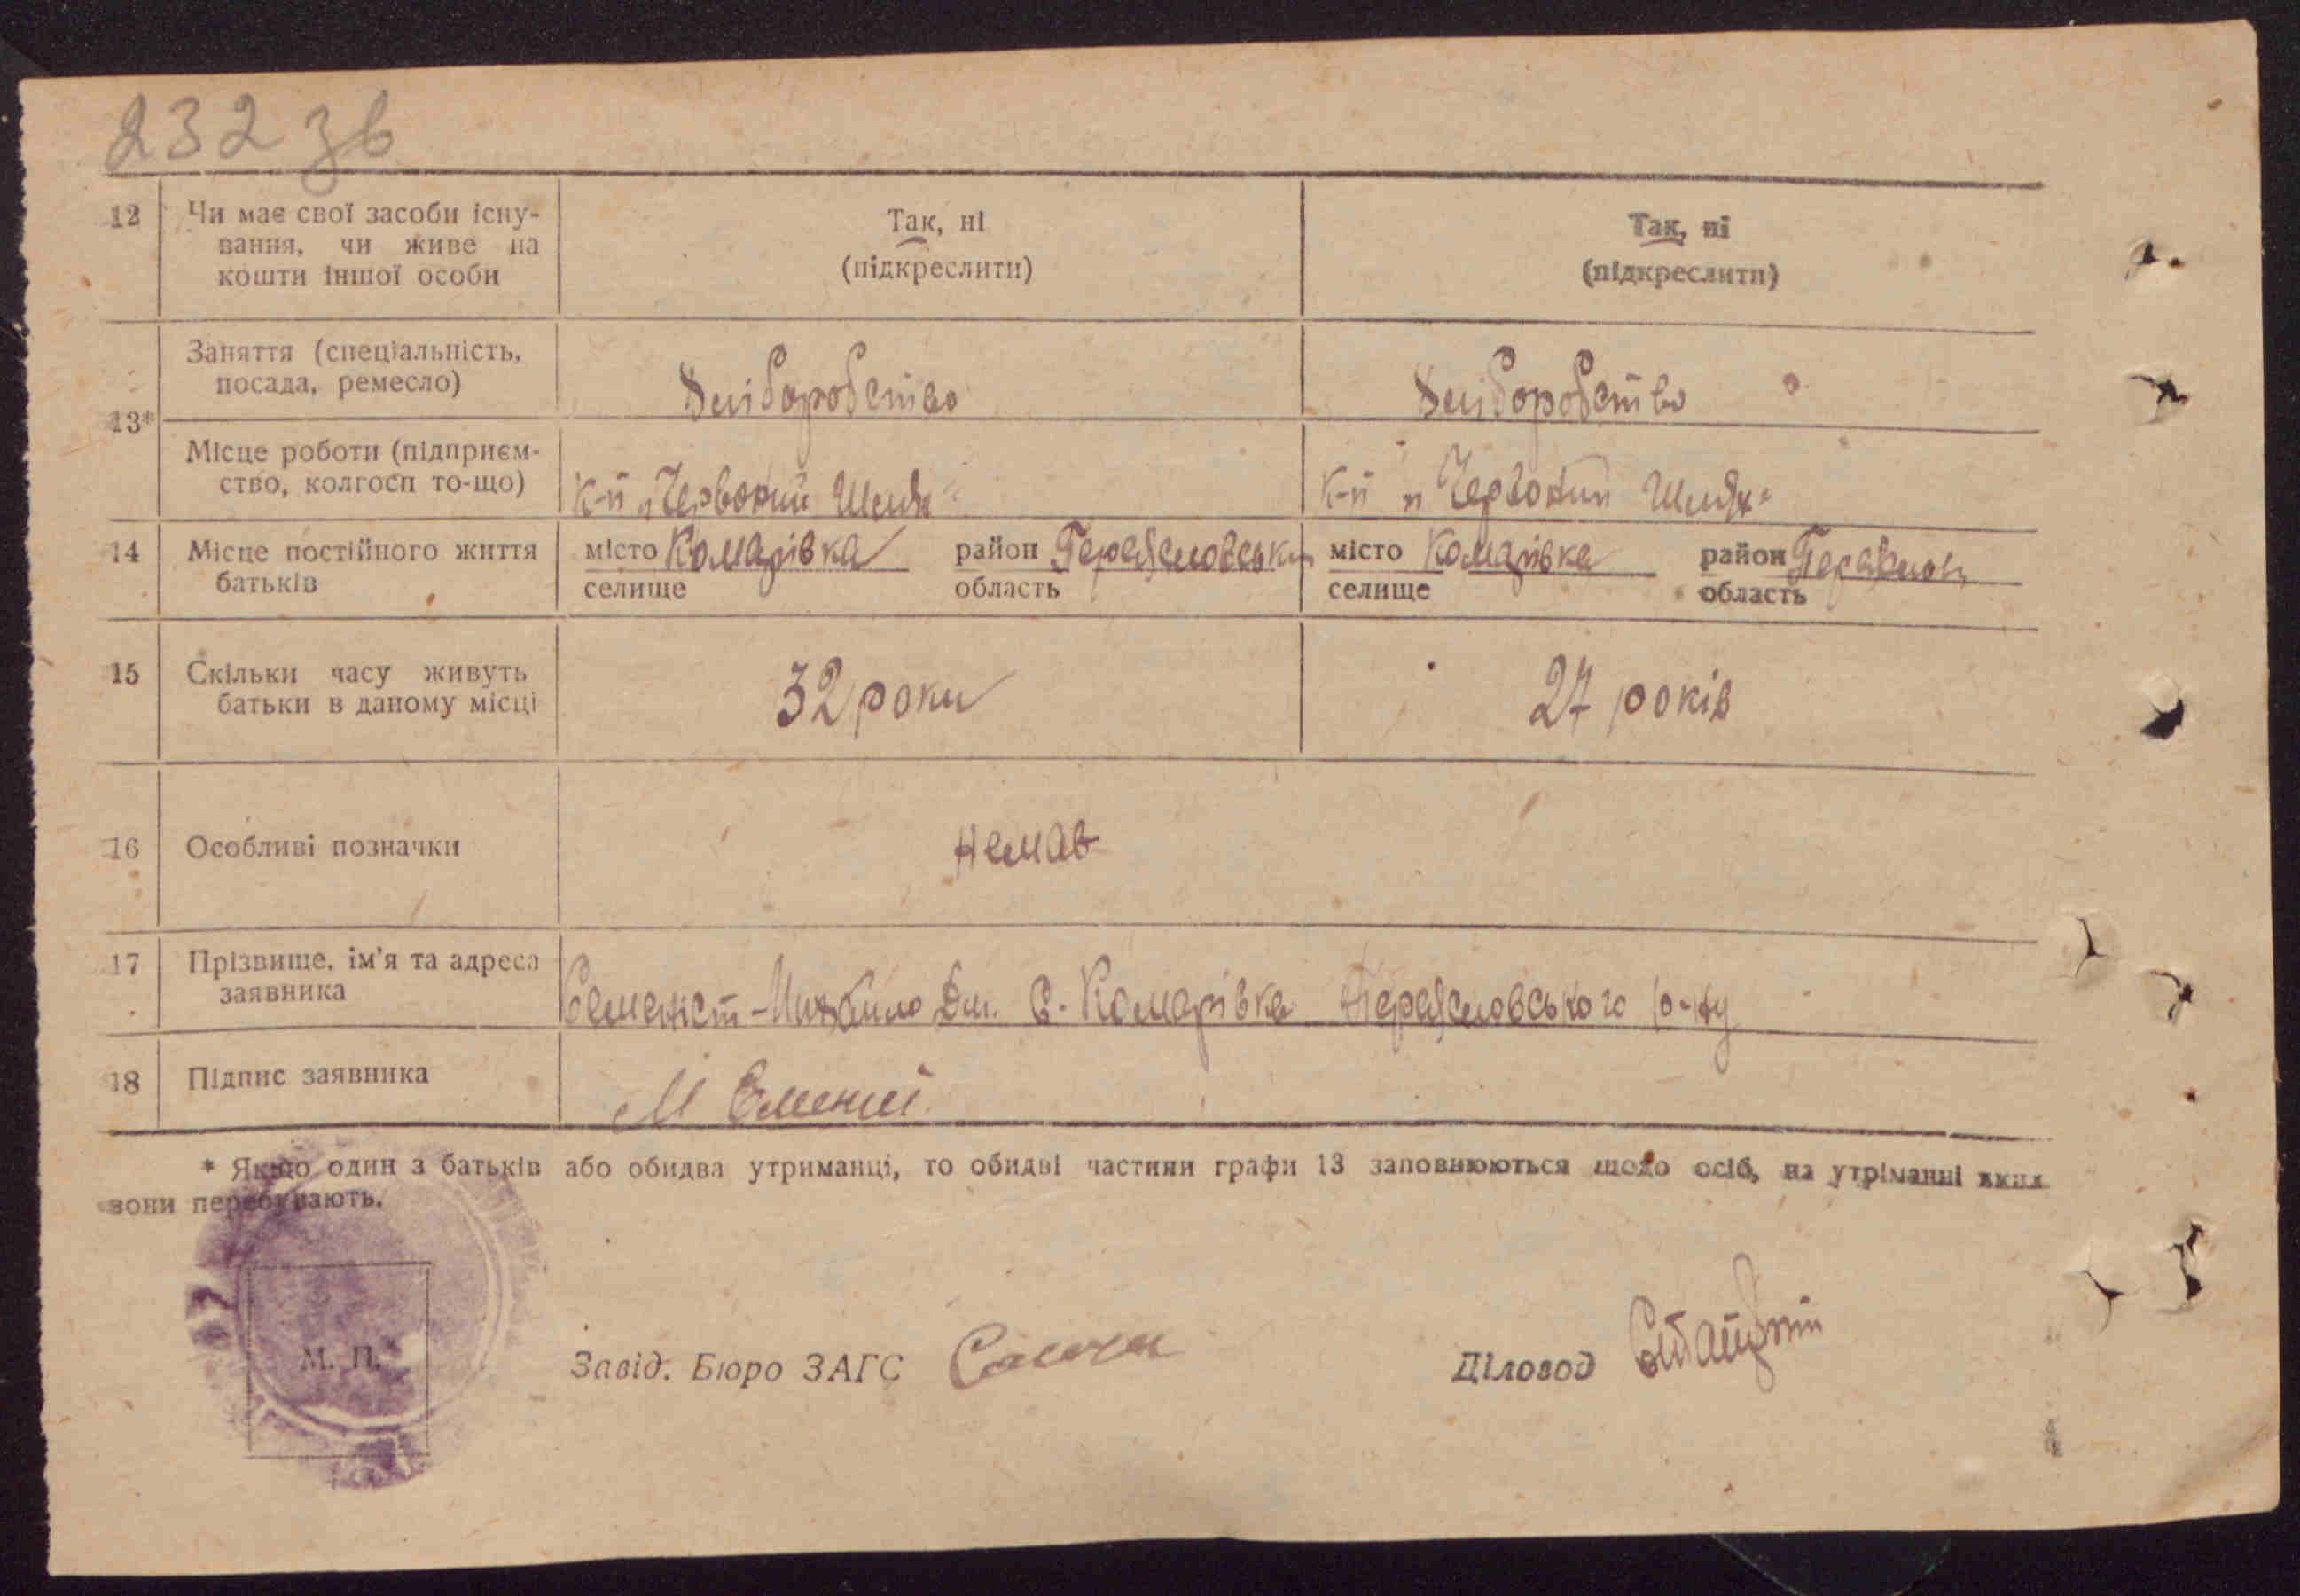 232 зв
12 Чи має свої засоби існу-
вання, чи живе на
кошти іншої особи
Так, ні
(підкреслити)
Так, ні
(підкреслити)
13*
Заняття (спеціальність,
посада, ремесло)
Хліборобство
Хліборобство
Місце роботи (підприєм-
ство, колгосп то-що)
к-п „Червоний Шлях"
к-п „Червоний Шлях"
14 Місце постійного життя
батьків
місто Комарівка район
селище область
місто Комарівка район
селище область
15 Скільки часу живуть
батьки в даному місці
32 роки
27 років
16 Особливі позначки
немає
17 Прізвище, ім'я та адреса
заявника
Михайло с. Комарівка р-ну
18 Підпис заявника
М
* Якщо один з батьків або обидва утриманці, то обидві частини графи 13 заповнюються щодо осіб, на утріманні яких
вони перебувають.
М. П.
Завід. Бюро ЗАГС
Діловод